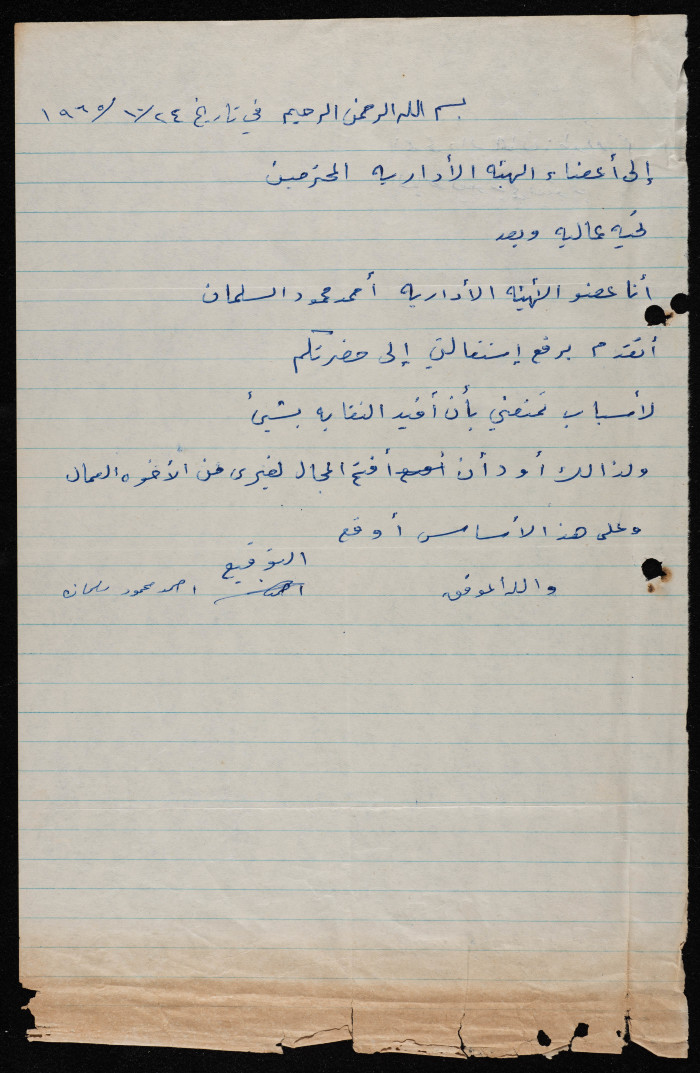 بسم الله الرحمن الرحيم في تاريخ ٢٤/١٠/١٩٦٥
إلى أعضاء الهيئه الأداريه المحترمين
تحيه عاليه وبعد
أنا عضو الهيئه الأداريه أحمد محمود السلمان
أتقدم برفع إستقالتي إلى حضرتكم
لأسباب تمنعني بأن أفيد النقابه بشيئ
ولذالك أود أن أفتح المجال لغيرى من الأخوه العمال
وعلى هذ الأساس أوقع
التوقيع
والله الموفق احمد محمود سلمان